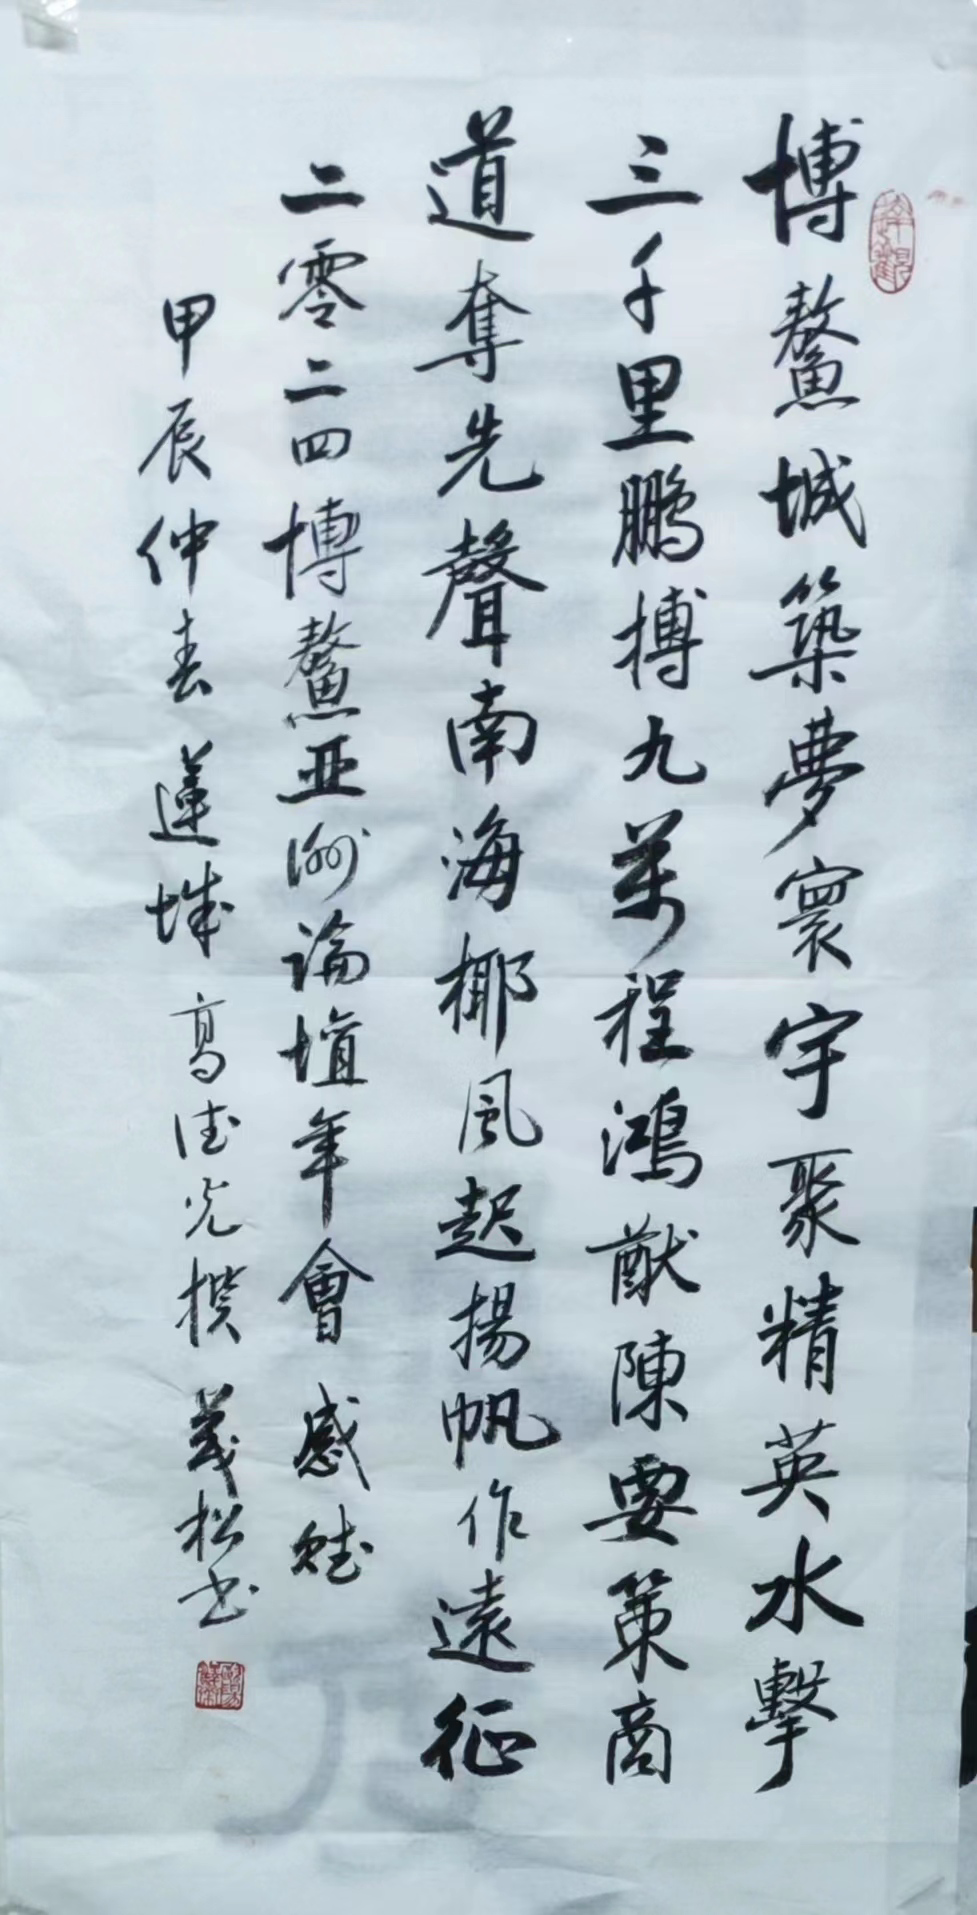 博鰲城築夢寰宇聚精英水擊
三千里鵬搏九萬程鴻猷陳要策商
道奪先聲南海椰風起揚帆作遠征
二零二四博鰲亚洲論壇年會感賦
甲辰仲春蓮城高德光撰義松书